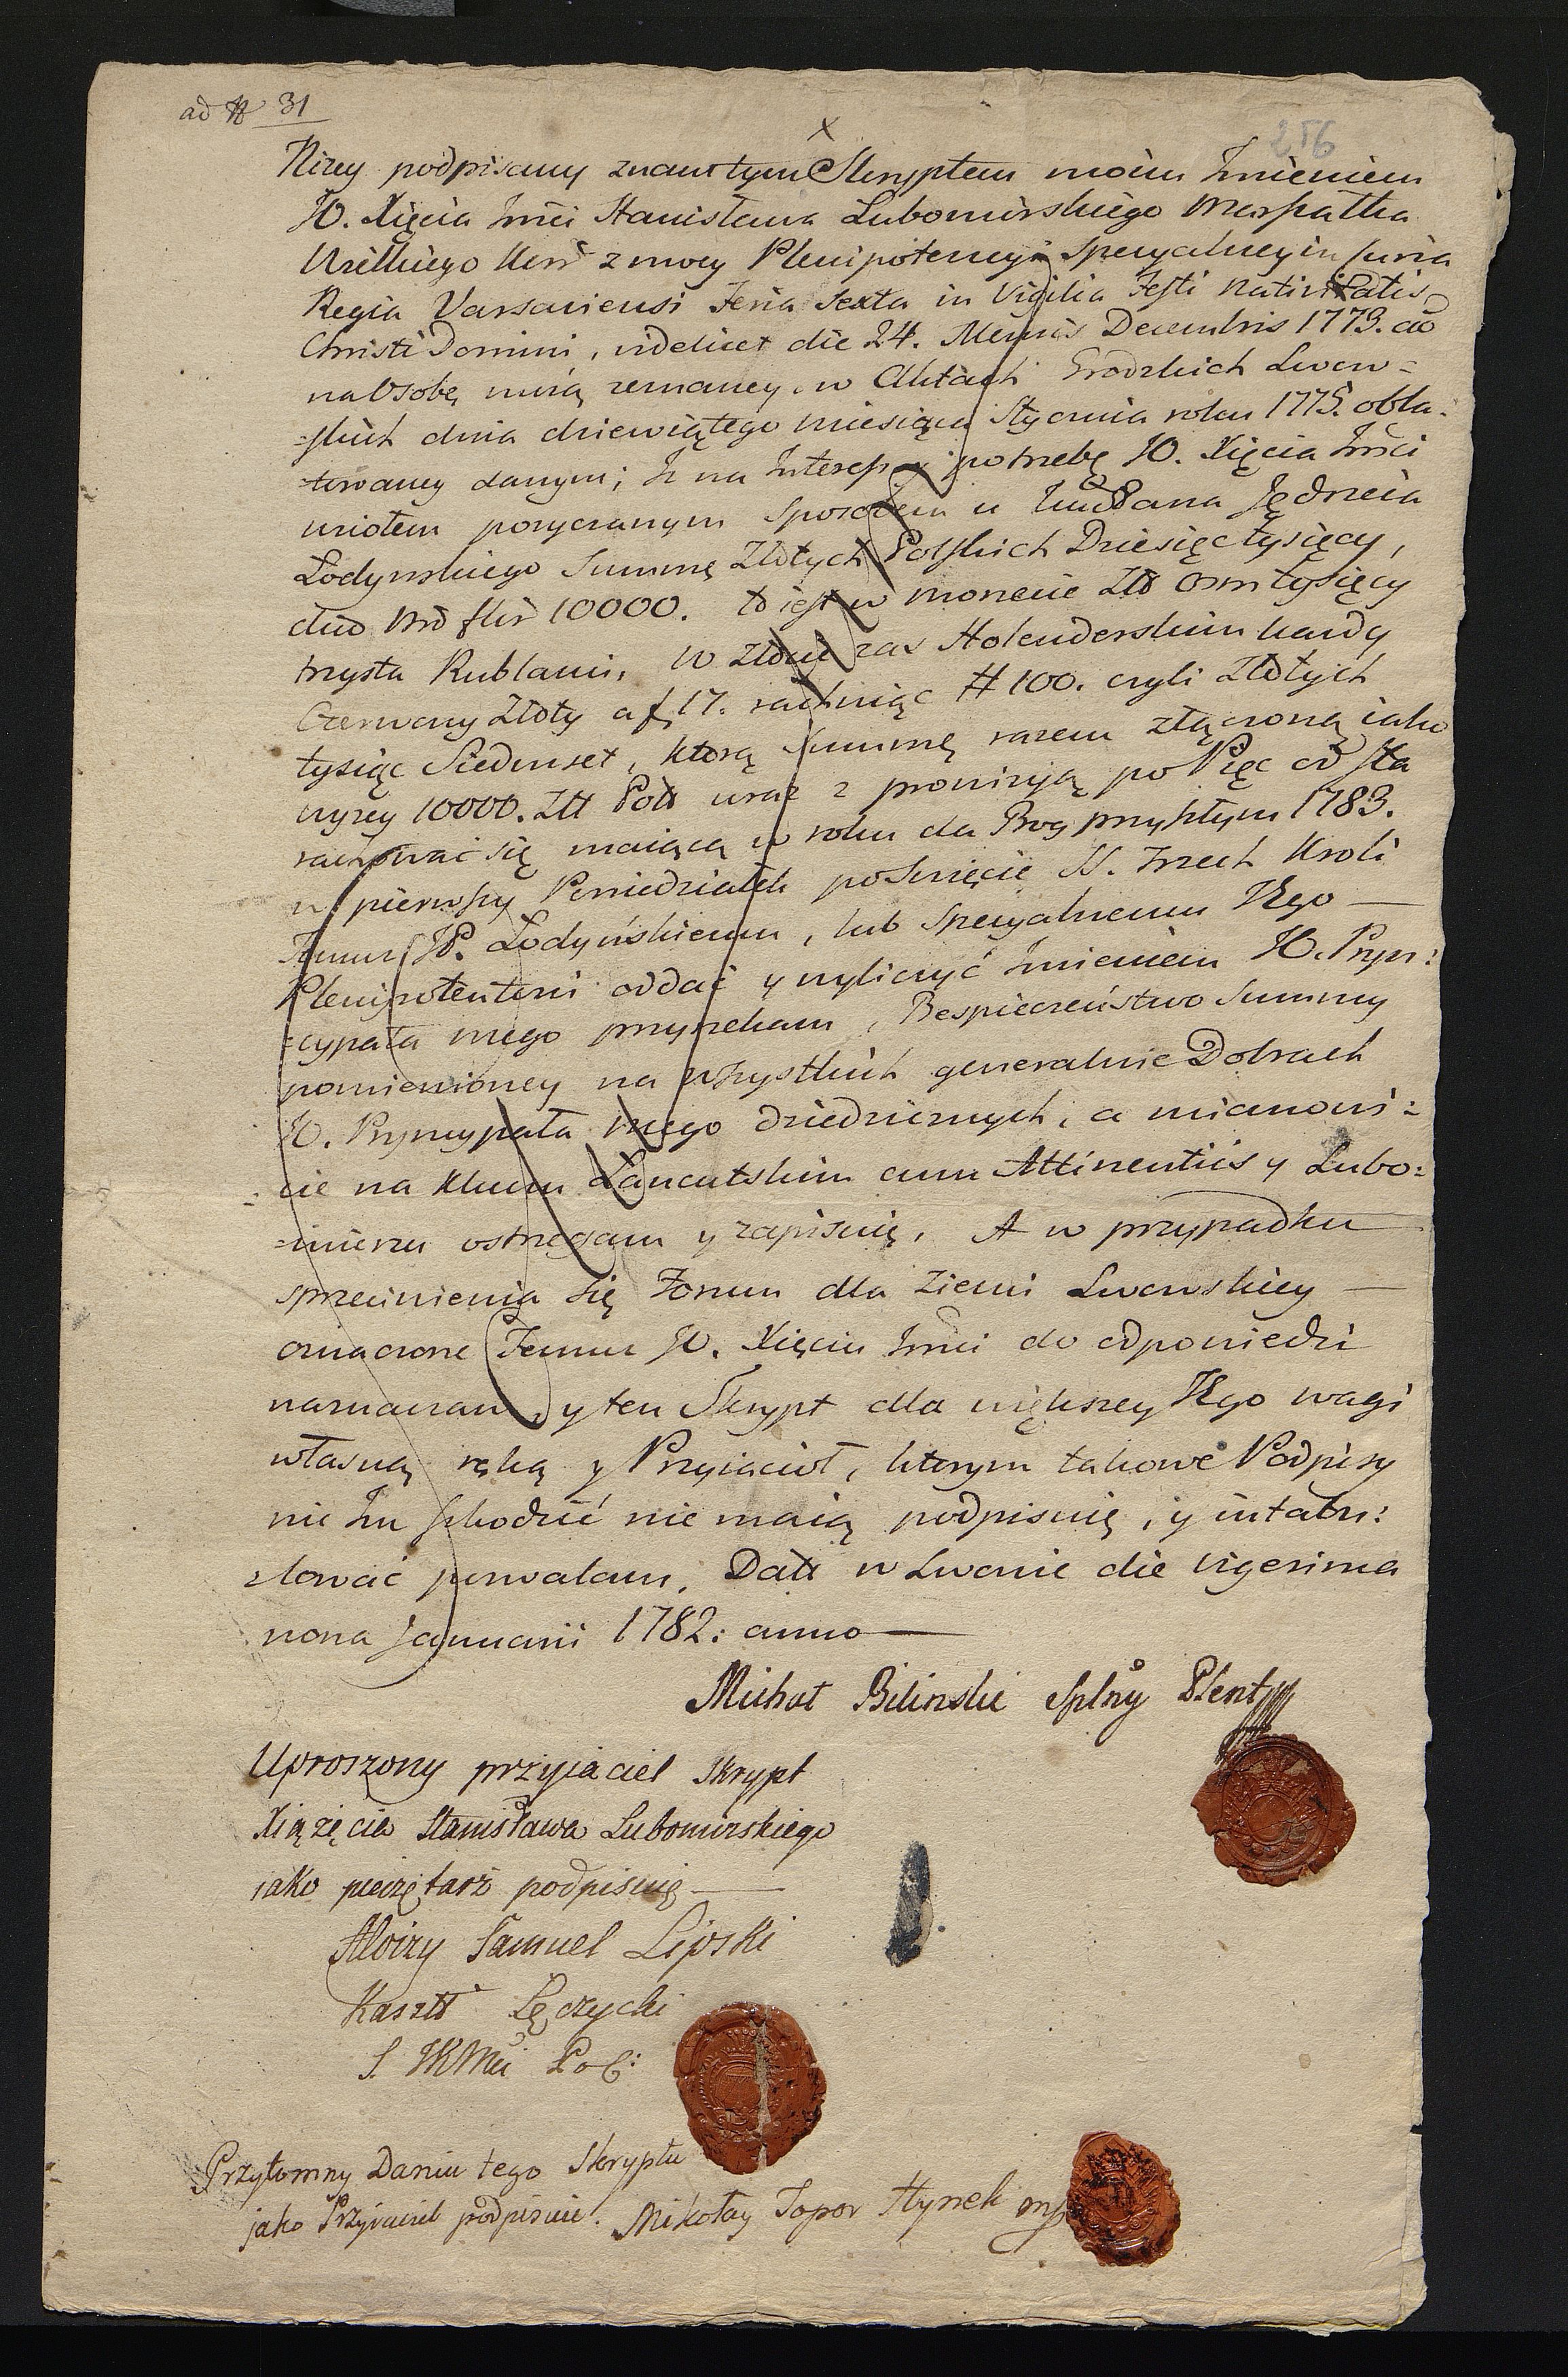 ad N 31
256
Niżey podpisany znam tym Skryptem moim Imieniem
JO. Xięcia Jmći Stanisława Lubomirskiego Marszałka
Wielkiego Kor. z mocy Plenipotencyi specyalney in Curia
Regia Varsaviensi Feria Sexta in Vigilia Festi Nativitatis
Christi Domini, videlicet die 24. Mensis Decembris 1773. ao
na Osobę moią zeznaney, w Aktach Grodzkich Lwow=
=skich dnia dziewiątego miesiąca Stycznia roku 1775. obla=
=towaney danym; Iż na Interess y potrzebę JO. Xięcia Jmći
wziołem pozyczanym sposobem u Pana Jędrzeia
Łodynskiego Summę Złotych Polskich Dziesięć tysięcy,
10000. to iest w monecie Złł osm tysięcy
trzysta Rublami, w złocie zas Holenderskim kazdy
Czerwony Złoty a f 17. rachuiąc # 100. czyli Złotych
tysiąc Siedmset, ktorą Summę razem złączoną iako
wyzey 10000. Złł Poll wraz z prowizyą po Pięc od sta
rachować się maiącą w roku da Bog przyszłym 1783.
w pierwszy Poniedziałek po Swięcie SS. Trzech Kroli
Temuz JP. Łodyńskiemu, lub specyalnemu Jego —
Plenipotentowi oddać y wyliczyć Imieniem JO. Pryn:
=cypała mego przyrzekam, Bespieczeństwo Summy
pomienioney na wszystkich generalnie Dobrach
JO. Pryncypała mego dziedzicznych, a mianowi:
cie na Kluczu Łancutskim cum Attinentiis y Lubo:
=mierzu ostrzegam y zapisuię, A w przypadku
sprzeciwienia się Forum dla Ziemi Lwowskiey —
oznaczone Temuz JO. Xięciu Jmći do odpowiedzi
naznaczam, y ten Skrypt dla większey Jego wagi
własną ręką y Przyiacioł, ktorym takowe Podpisy
nic Im szkodzić nie maią podpisuię, y intabu:
=lować pozwalam. Datt w Lwowie die vigesima
nona Januarii 1782: anno —
Michał Bilinski Splny Plent
Uproszony przyjaciel Skrypt
Xiążęcia Stanisława Lubomirskiego
iako pieczętarz podpisuię —
Aloizy Samuel Lipski
Kasztł Łęczycki
S. JKMći Pol:
Przytomny Daniu tego Skryptu
jako Przyiaciel podpisuie. Mikołay Topor Hynek mp